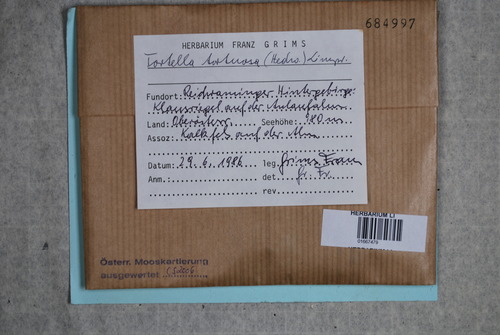 684997
HERBARIUM FRANZ GRIMS
Tortella tortuosa (Hedw.) Limpr.
Fundort: Reichraminger Hintergebirge:
Klausriegel auf der Anlaufalm
Land: Oberösterr. Seehöhe: 980 m
Assoz: Kalkfels auf der Alm
Datum: 29.6.1986 leg. Grims Franz
Anm.: det. Gr. Fr.
rev.
HERBARIUM LI
01667479
Österr. Mooskartierung
ausgewertet